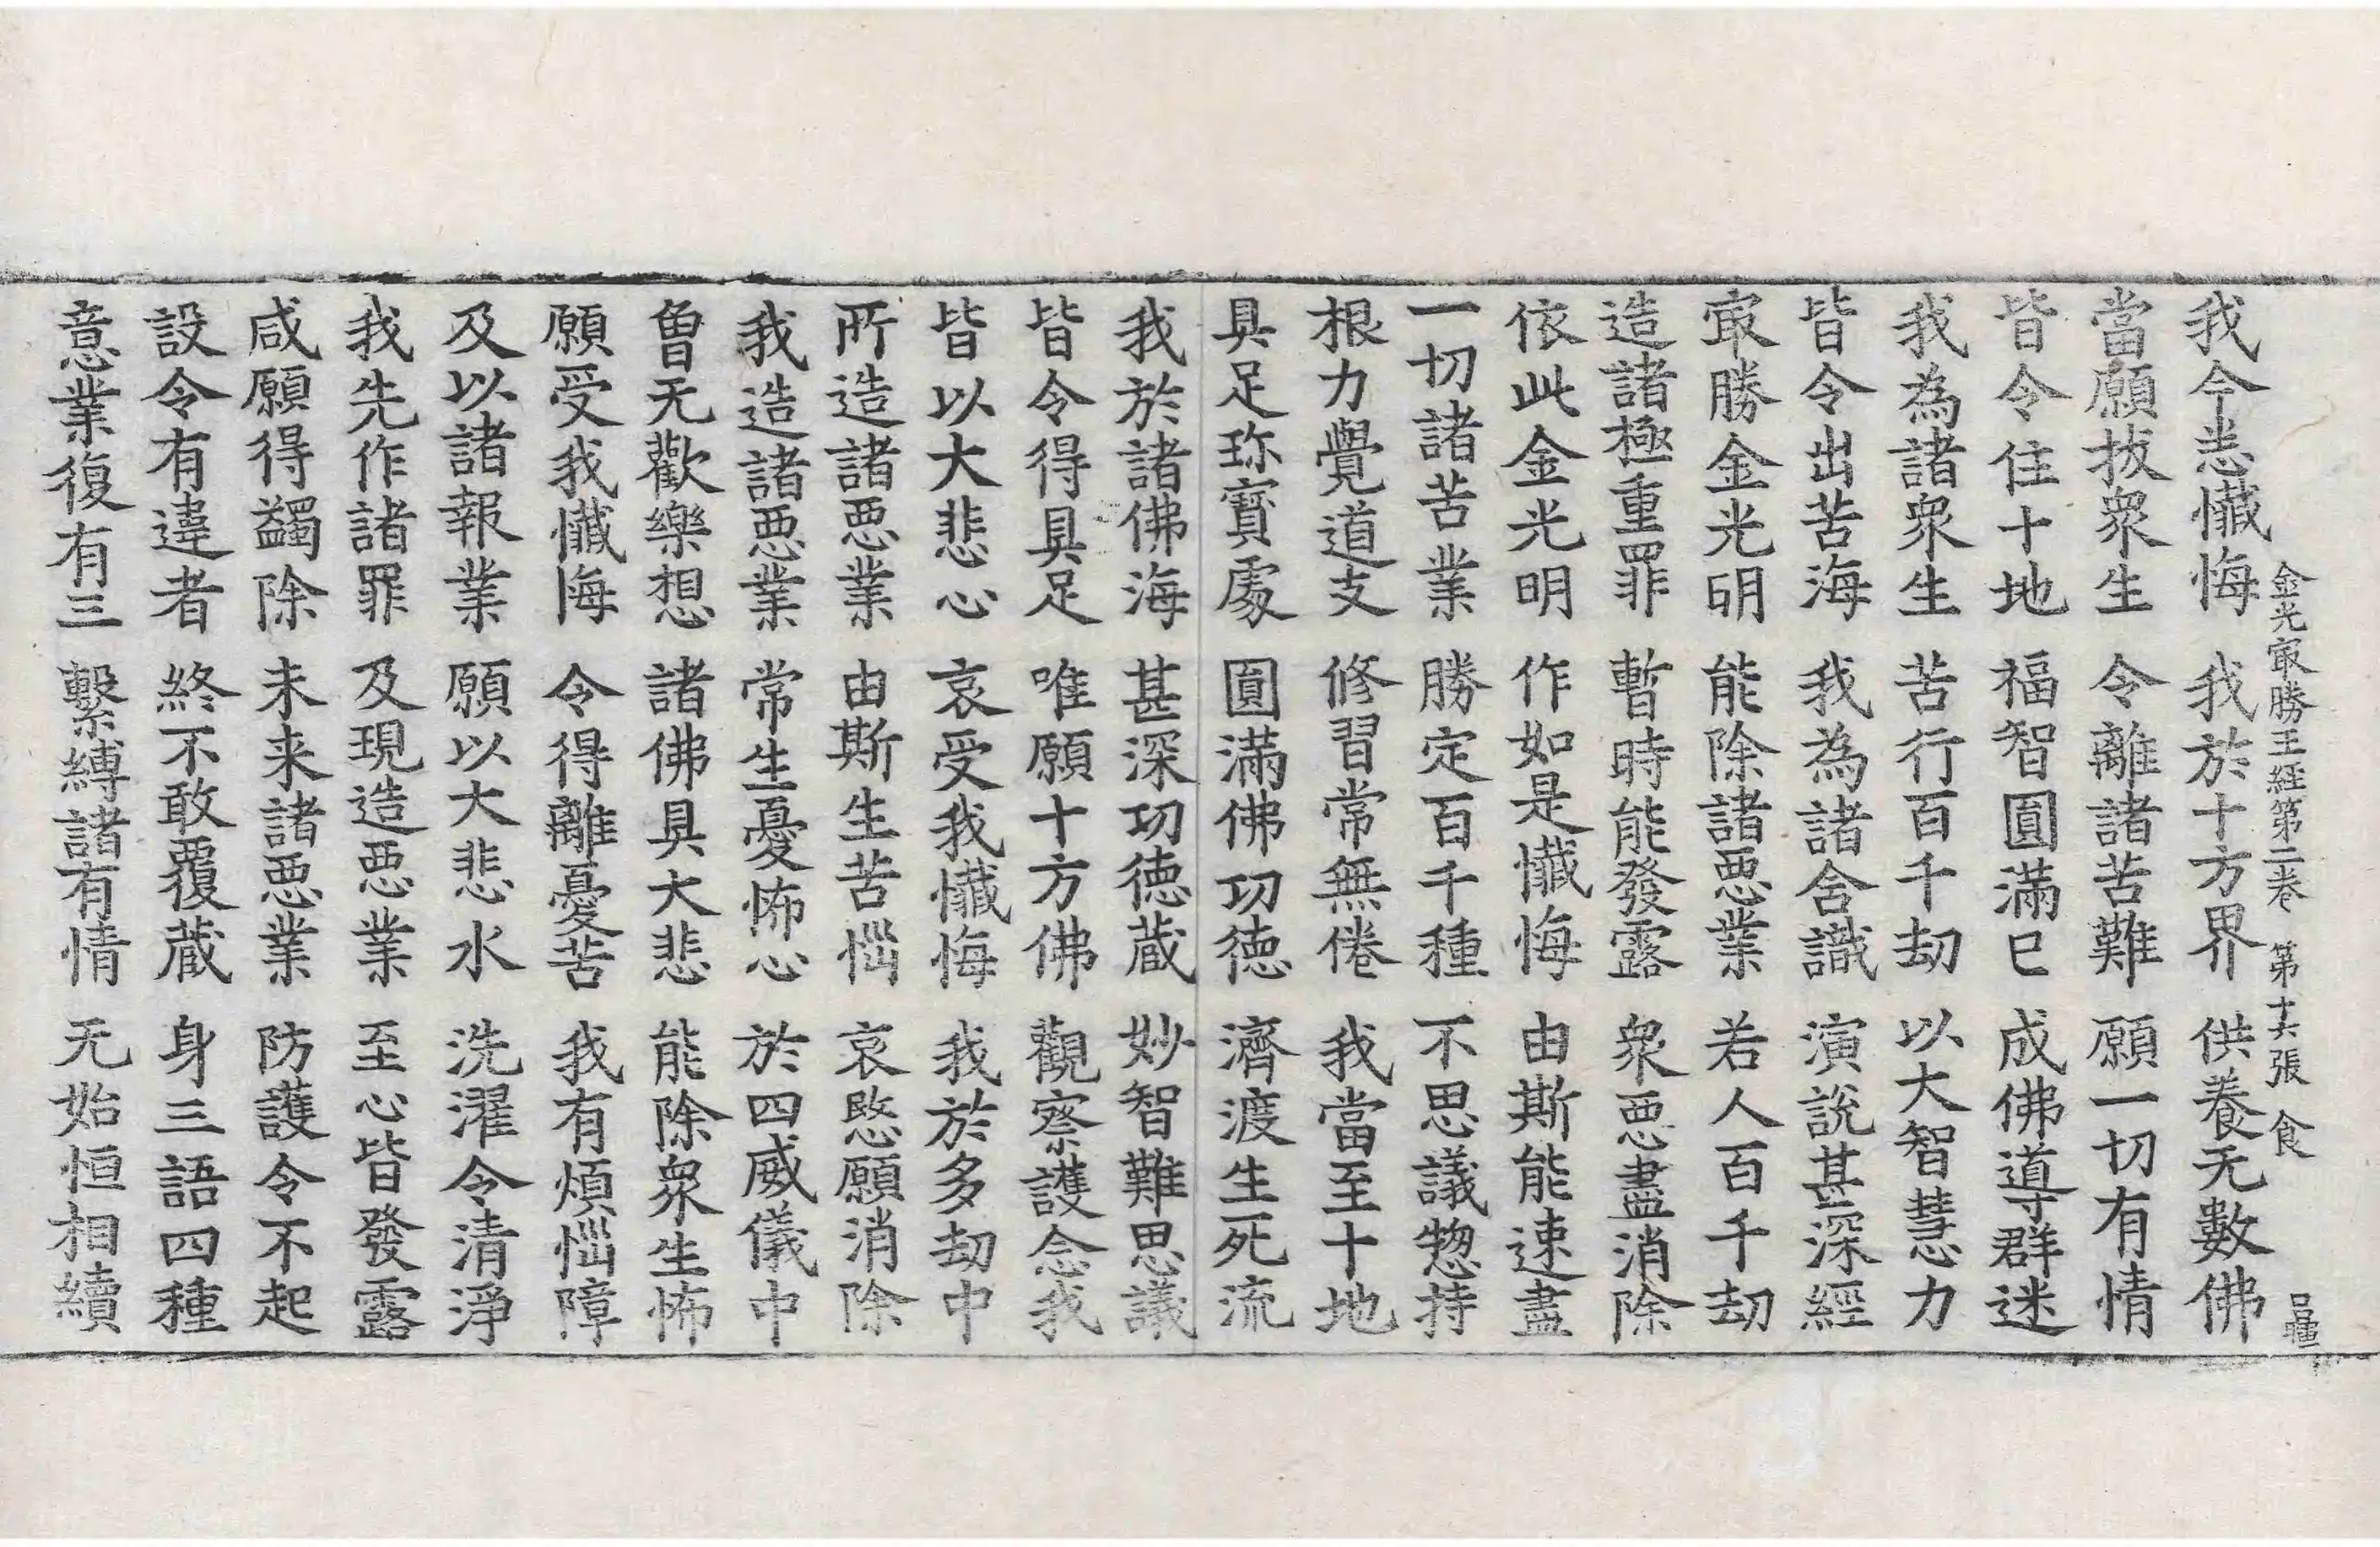 金光㝡勝王經第二卷　第十六張　食
我今悉懺悔　我於十方界　供養无數佛
當願拔衆生　令離諸苦難　願一切有情
皆令住十地　福智圓滿已　成佛導群迷
我為諸衆生　苦行百千劫　以大智慧力
皆令出苦海　我為諸含識　演說甚深經
㝡勝金光明　能除諸惡業　若人百千劫
造諸極重罪　暫時能發露　衆惡盡消除
依此金光明　作如是懺悔　由斯能速盡
一切諸苦業　勝定百千種　不思議惣持
根力覺道支　修習常無倦　我當至十地
具足珎寶處　圓滿佛功德　濟渡生死流
我於諸佛海　甚深功德藏　妙智難思議
皆令得具足　唯願十方佛　觀察護念我
皆以大悲心　哀受我懺悔　我於多劫中
所造諸惡業　由斯生苦惱　哀愍願消除
我造諸惡業　常生憂怖心　於四威儀中
曾无歡樂想　諸佛具大悲　能除衆生怖
願受我懺悔　令得離憂苦　我有煩惱障
及以諸報業　願以大悲水　洗濯令清淨
我先作諸罪　及現造惡業　至心皆發露
咸願得蠲除　未来諸惡業　防護令不起
設令有違者　終不敢覆藏　身三語四種
意業復有三　繫縛諸有情　无始恒相續